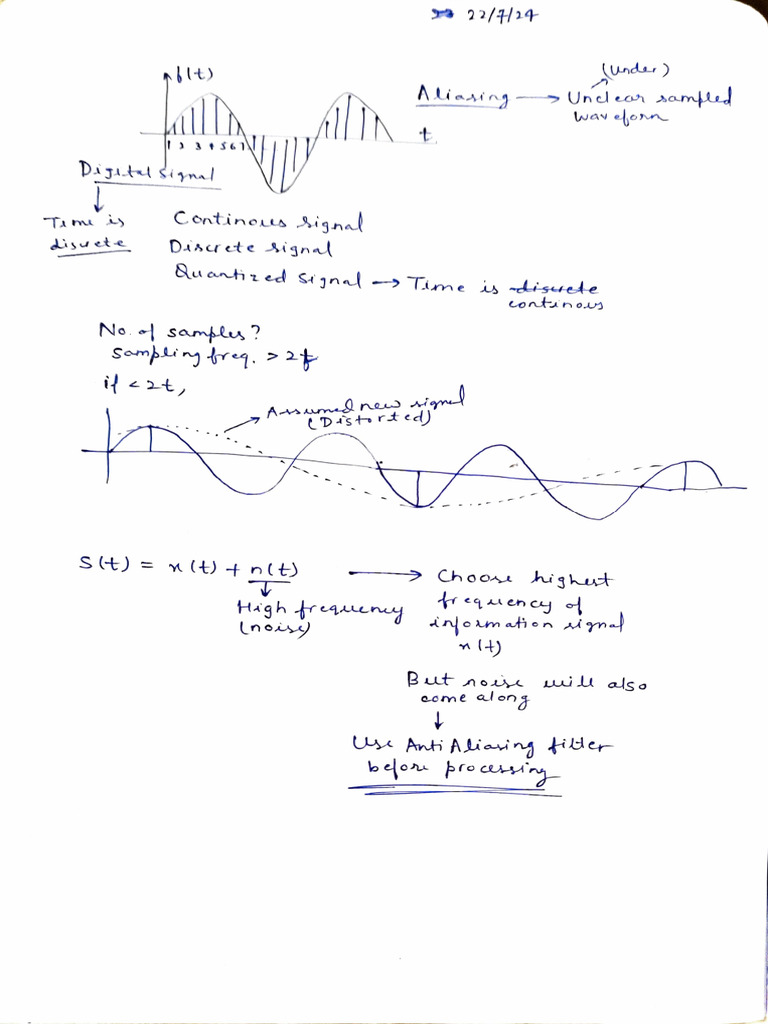 22/7/24
f(t)
(Under)
Aliasing → Unclear sampled
waveform
t
1 2 3 4 5 6 7
Digital signal
Time is
discrete
Continous signal
Discrete signal
Quantized signal → Time is discrete
continous
No. of samples?
sampling freq. > 2f
if < 2t,
Assumed new signal
(Distorted)
S(t) = x(t) + n(t) → Choose highest
frequency of
information signal
x(t)
High frequency
(noise)
But noise will also
come along
Use Anti Aliasing filter
before processing